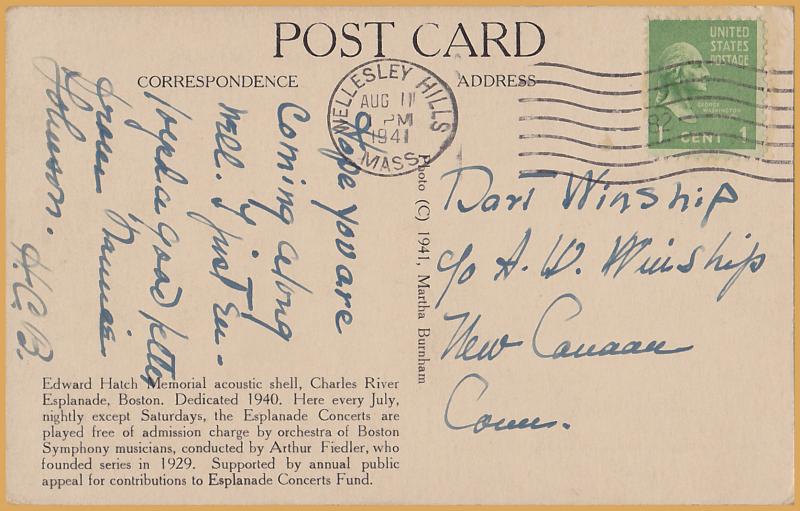 POST CARD
CORRESPONDENCE
ADDRESS
WELLESLEY HILLS
AUG 11
PM
1941
MASS.
UNITED
STATES
POSTAGE
GEORGE
WASHINGTON
1 CENT 1
Hope you are
Coming along
well. I just En-
joyed a good letter
from
Johnson.
H.C.B.
Photo (C) 1941, Martha Burnham
Dart Winship
c/o A. W. Winship
New Canaan
Conn.
Edward Hatch Memorial acoustic shell, Charles River
Esplanade, Boston. Dedicated 1940. Here every July,
nightly except Saturdays, the Esplanade Concerts are
played free of admission charge by orchestra of Boston
Symphony musicians, conducted by Arthur Fiedler, who
founded series in 1929. Supported by annual public
appeal for contributions to Esplanade Concerts Fund.